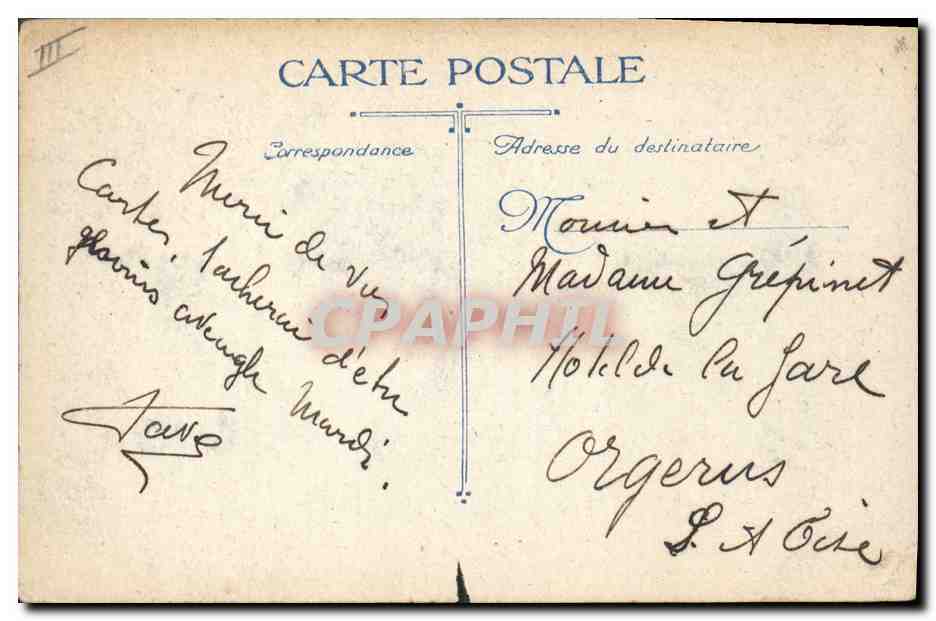 III
CARTE POSTALE
Correspondance
Adresse du destinataire
Merci de vos
Cartes, tacherai d'être
avec Mardi.
Monsieur et
Madame Grépinet
Hotel de la Gare
Orgerus
S. et Oise
CPAPHIL